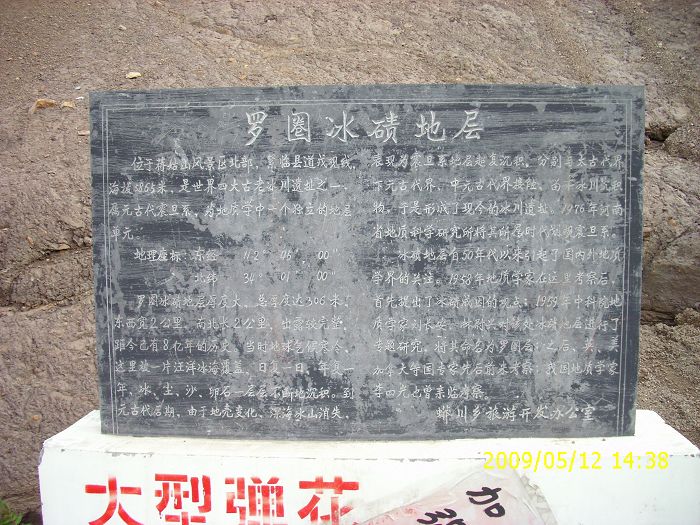 罗圈冰碛地层
位于蒋姑山风景区北部，紧临县道茂现线，
海拔865米，是世界四大古老冰川遗址之一，
属元古代震旦系，为地质学中一个独立的地层
单元。
地理座标：东经 112° 05′ 00″
北纬 34° 01′ 00″
罗圈冰碛地层厚度大，总厚度达306米，
东西宽2公里，南北长2公里，出露较完整，
距今已有8亿年的历史。当时地球气候寒冷，
这里被一片汪洋冰海覆盖，日复一日、年复一
年，冰、尘、沙、卵石一层层不断地沉积。到
元古代后期，由于地壳变化、深海冰山消失，
表现为震旦系地层超复沉积，分别与太古代界
下元古代界、中元古代界接险，由于冰川沉积
物，于是形成了现今的冰川遗址。1976年河南
省地质科学研究所将其所属时代划观震旦系。
冰碛地层有50年代以来引起了国内外地质
学界的关注。1958年地质学家在这里考察后，
首先提出了冰碛成因的观点；1959年中科院地
质学家刘长安、林蔚兴对该处冰碛地层进行了
专题研究，将其命名为罗圈层；之后，英、美
加拿大等国专家先后前来考察；我国地质学家
李四光也曾亲临考察。
蟒川乡旅游开发办公室
大型弹花
加
2009/05/12 14:38